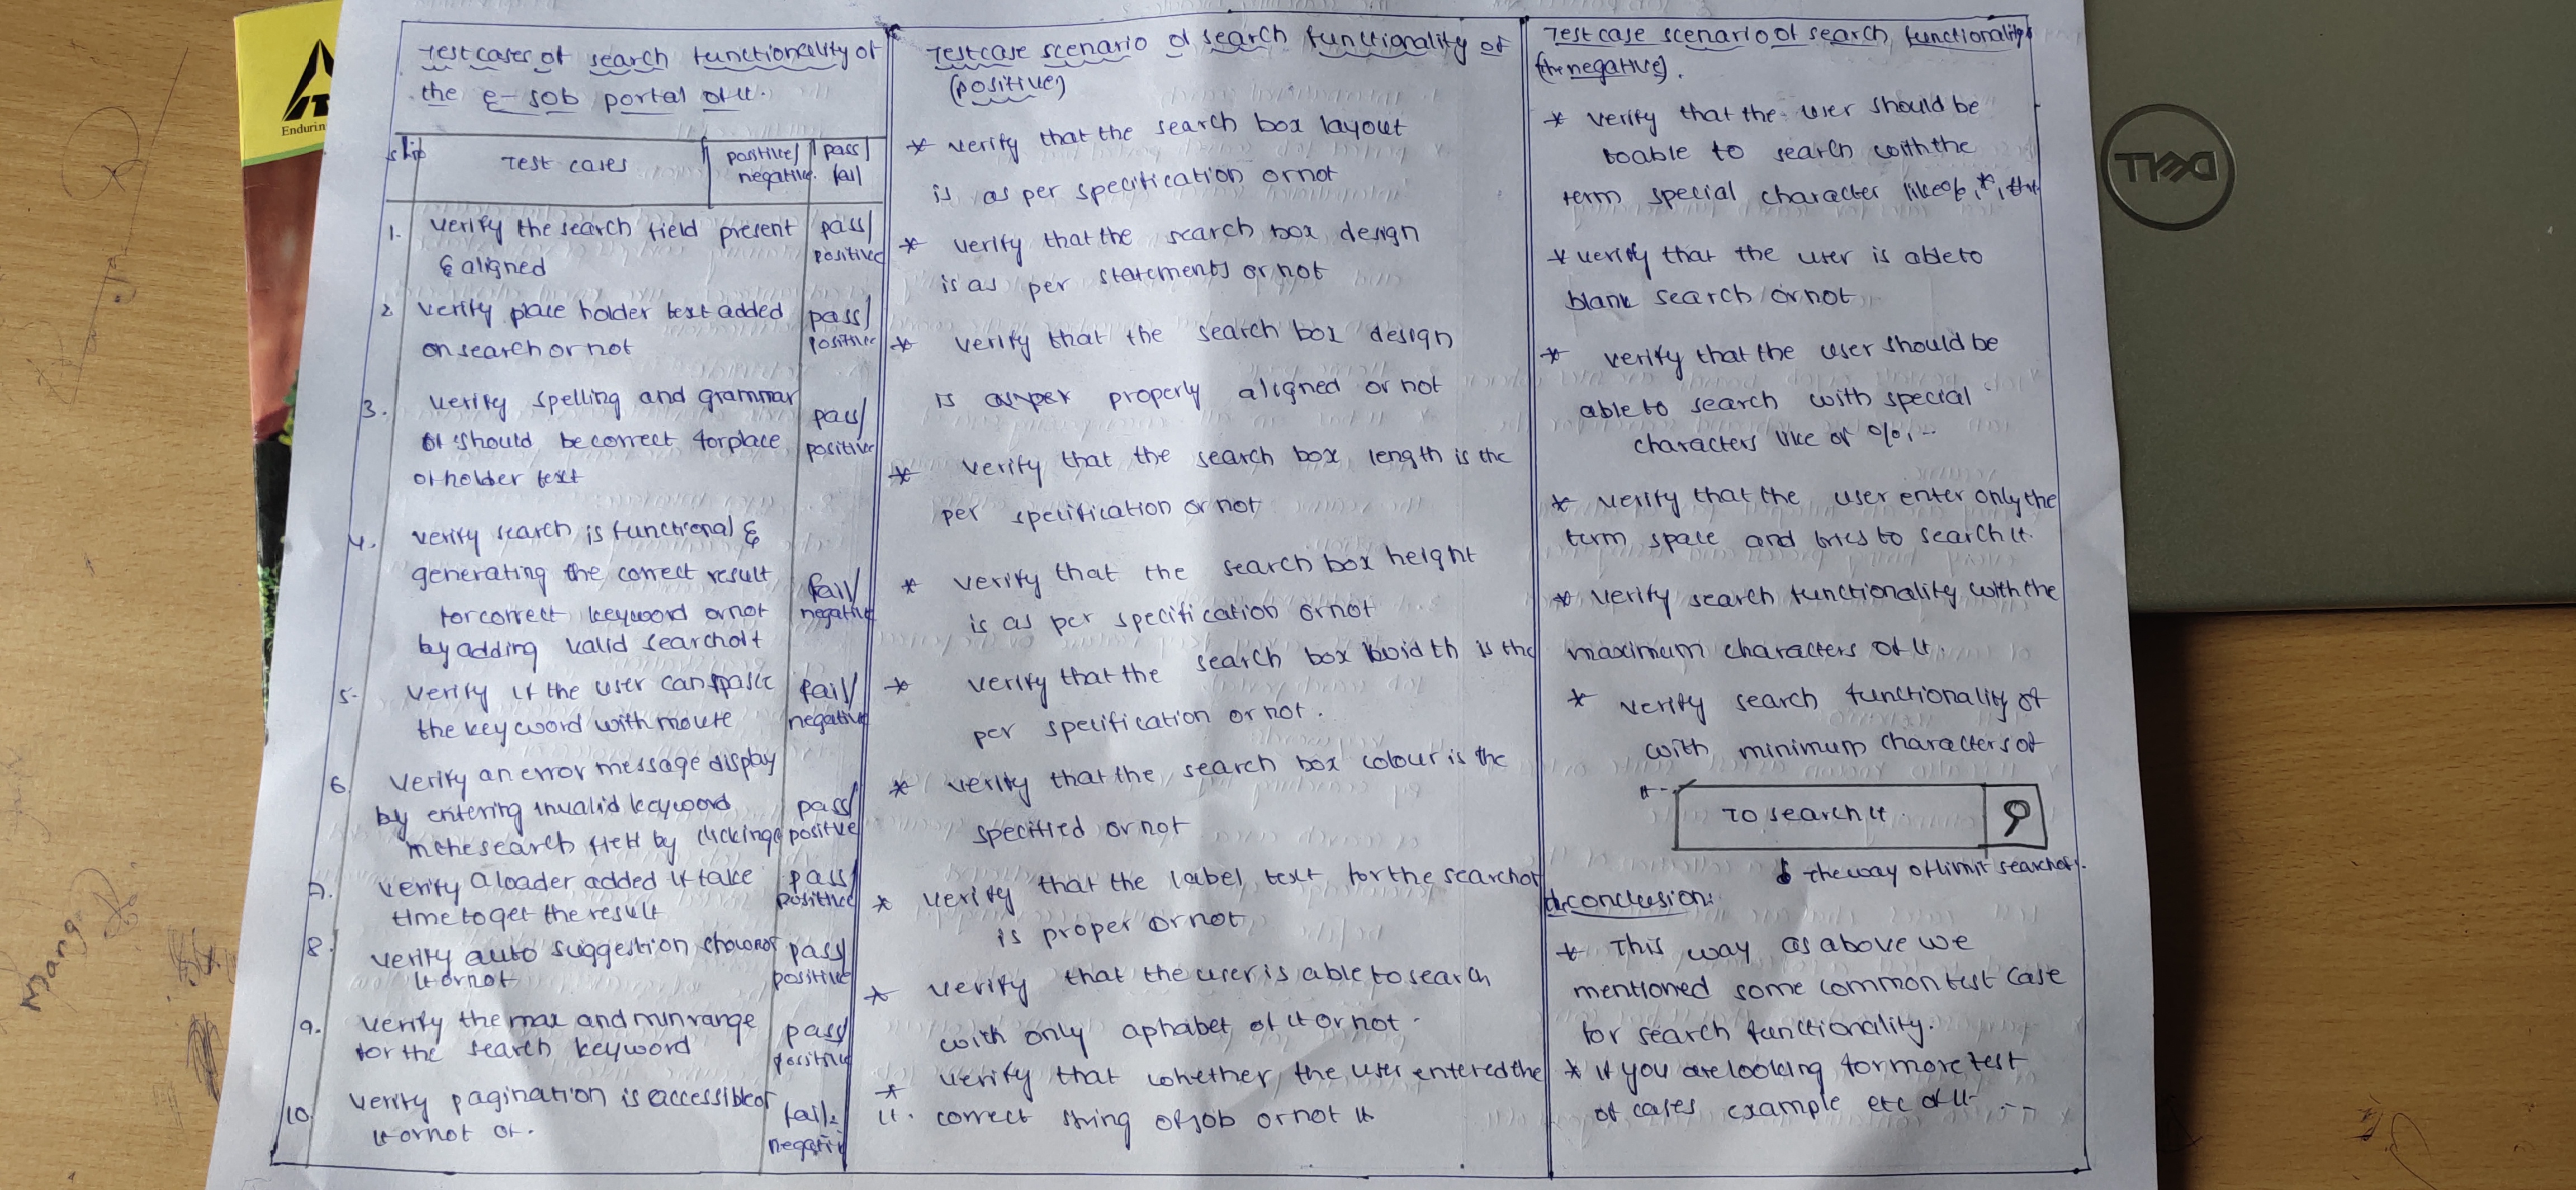 Testcases of search functionality of
the E-Job portal of it..
s.no
Test cases
positive/
negative.
pass/
fail
1. verify the search field present
& aligned
pass/
positive
2. verify place holder text added
on search or not
pass/
positive
3. verify spelling and grammar
of should be correct forplace
of holder text
pass/
positive
4. verify search is functional &
generating the correct result
for correct keyword or not
by adding valid search of it
fail/
negative
5. verify if the user can paste
the keyword with mouse
fail/
negative
6. verify an error message display
by entering invalid keyword
in the search field by clicking
pass/
positive
7. verify a loader added it take
time to get the result
pass/
positive
8. verify auto suggestion shows
it or not
pass/
positive
9. verify the max and min range
for the search keyword
pass/
positive
10. verify pagination is accessible of
it or not of..
fail/
negative
Testcase scenario of search functionality of
(positive)
* verify that the search box layout
is as per specification or not
* verify that the search box design
is as per statements or not
* verify that the search box design
is as per properly aligned or not
* verify that the search box length is the
per specification or not
* verify that the search box height
is as per specification or not
* verify that the search box width is the
per specification or not.
* verify that the search box colour is the
specified or not
* verify that the label, text for the search of
is proper or not
* verify that the user is able to search
with only aphabet of it or not.
* verify that whether the user entered the
correct string of job or not it
it.
Test case scenario of search functionality
(the negative).
* verify that the user should be
to able to search with the
term special character like
* verify that the user is able to
blank search or not
* verify that the user should be
able to search with special
characters like of %,..
* verify that the user enter only the
term space and tries to search it.
* verify search functionality with the
maximum characters of it.
* verify search functionality of
with minimum characters of
it..
To search it.
the way of limit search of.
conclusion:
* This way as above we
mentioned some common test case
for search functionality.
* if you are looking for more test
of cases example etc of it
DELL
Endurin